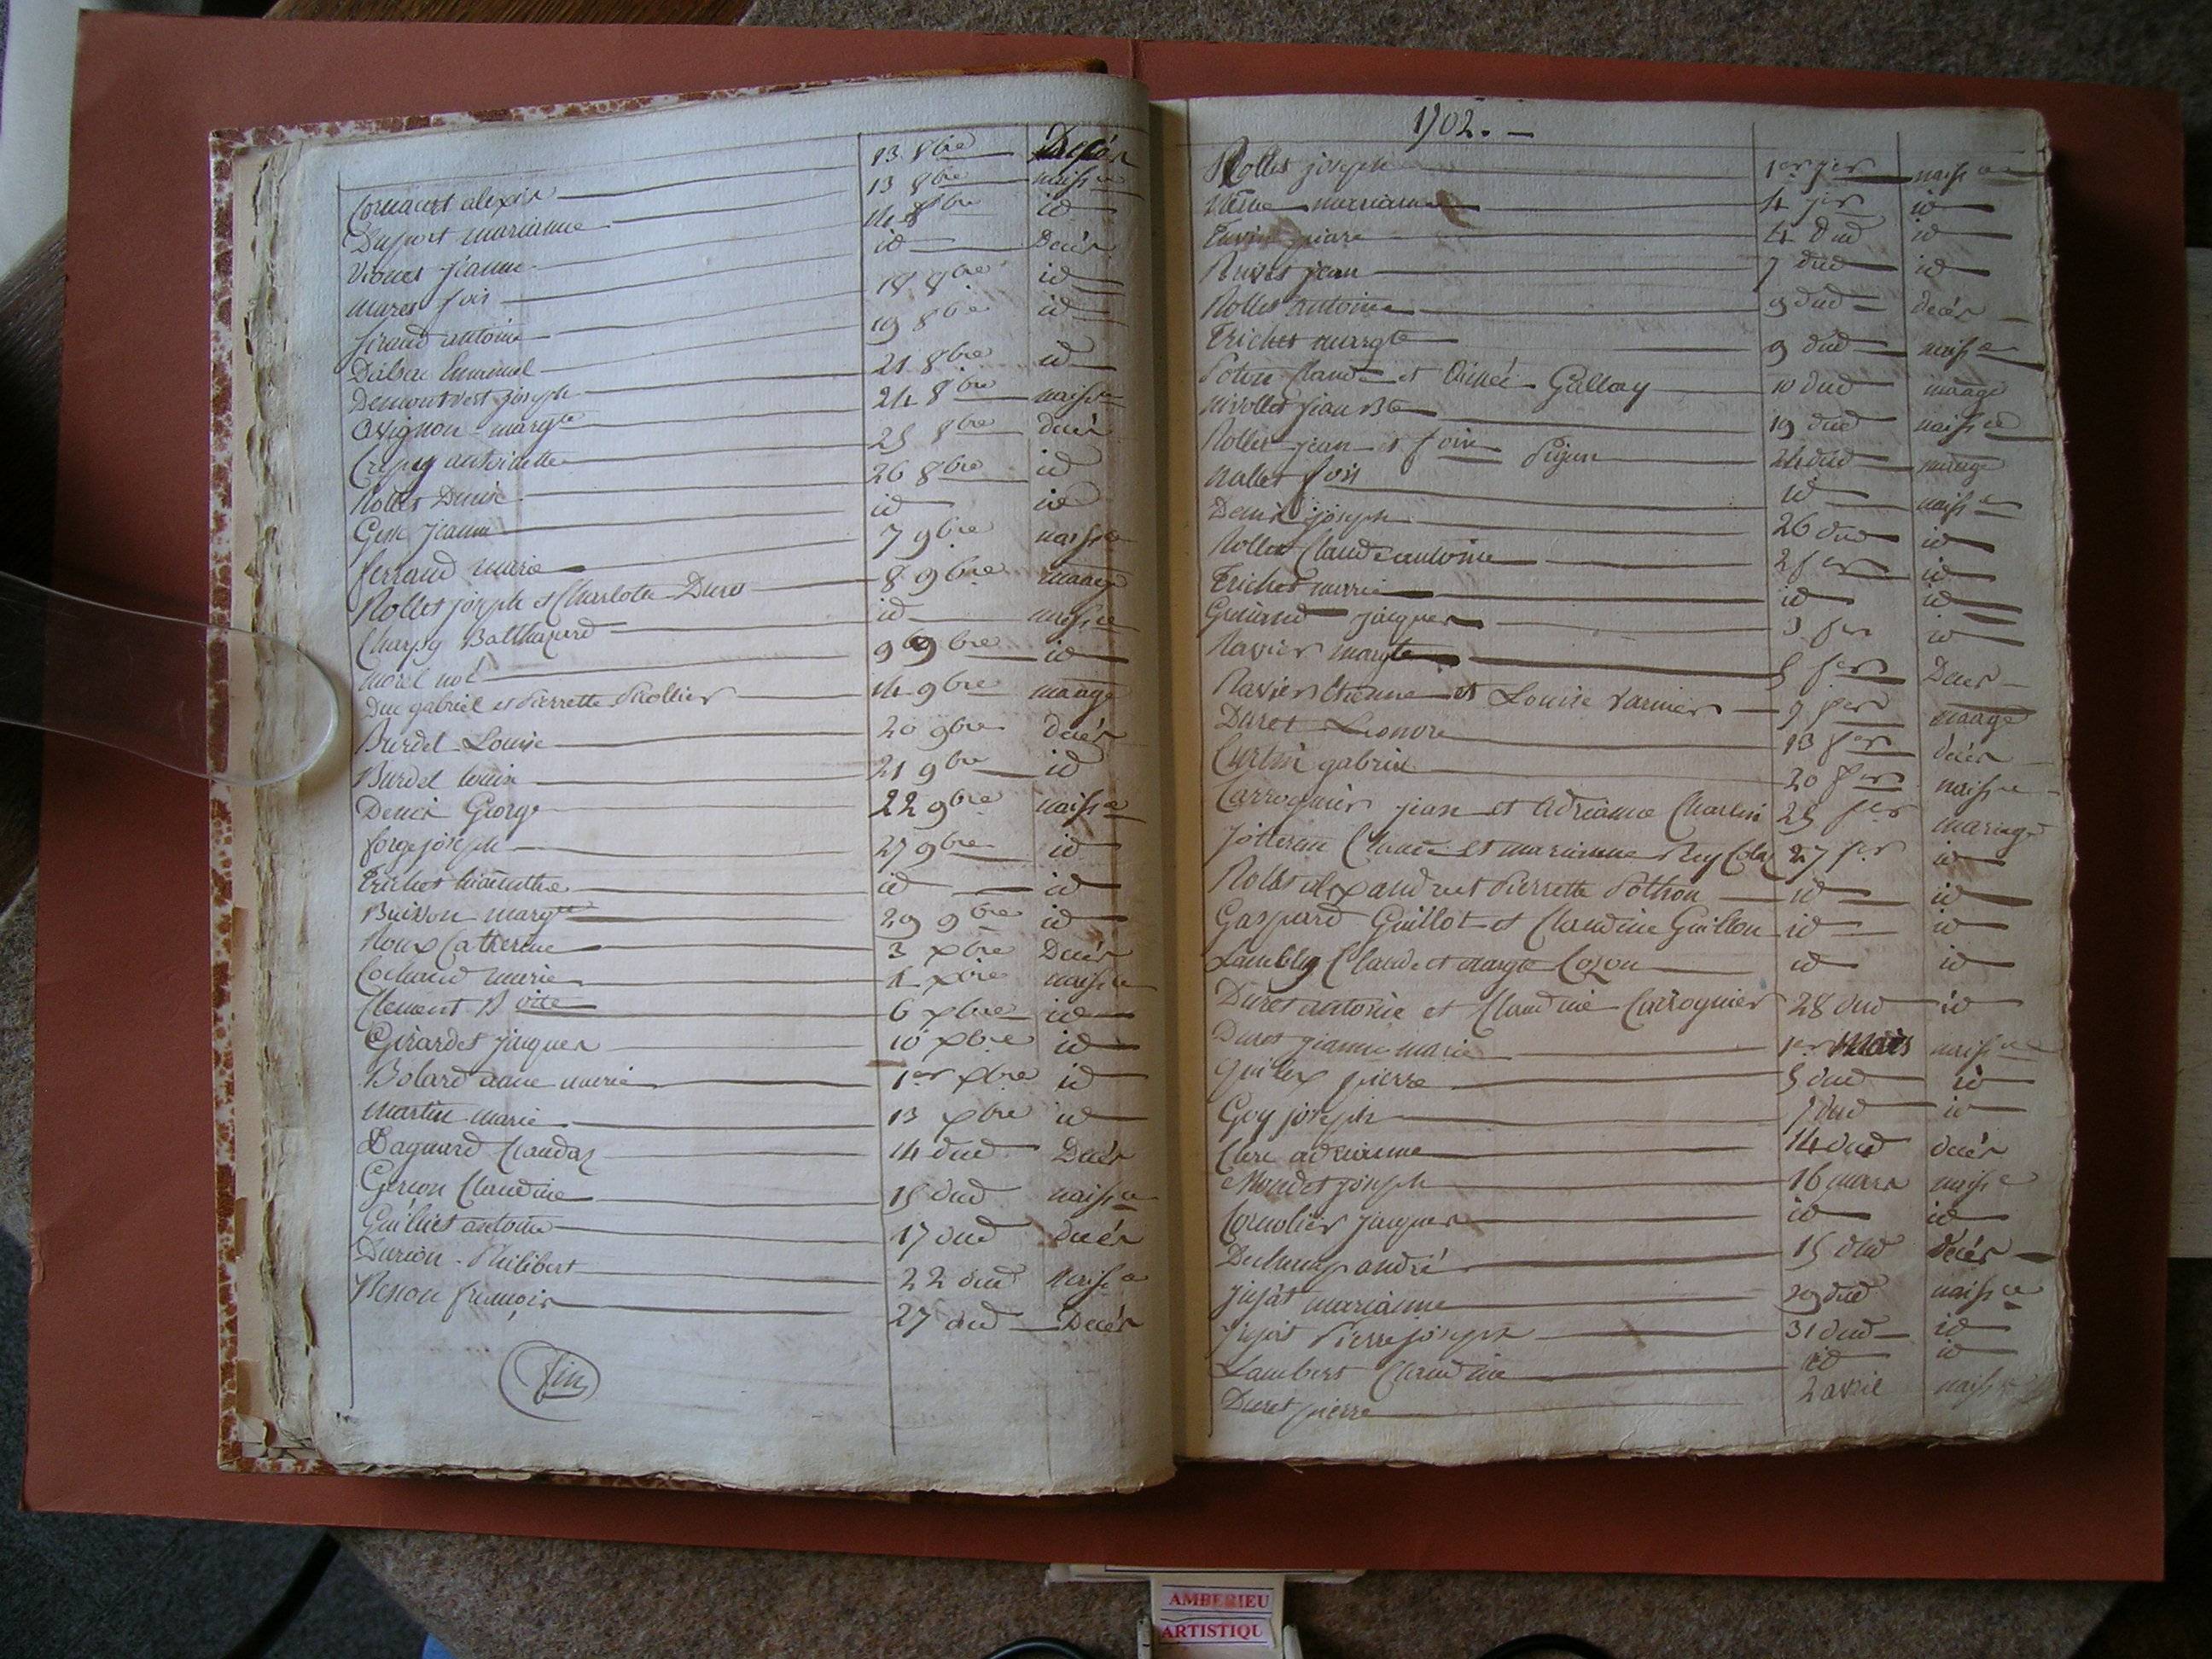 13 8bre Decés
Cornaert alexis 13 8bre naissce
Duport marianne 14 8bre id
jeanne id Decés
mares fois 18 8bre id
giraud antoine 19 8bre id
Emanuel 21 8bre id
Demontvert joseph 24 8bre naissce
Avignon margte 25 8bre decés
Crepuy antoinette 26 8bre id
Rollet Denise id id
jeanne 7 9bre naissce
ferraud marie 8 9bre mariage
Rollet joseph et Charlote Duret id naissce
Charpy Balthazard 9 9bre id
morel 14 9bre mariage
Duc gabriel et Pierrette
Burdel Louise 20 9bre decés
Burdel louis 21 9bre id
Denis George 22 9bre naissce
forge joseph 27 9bre id
Trichet id id
Buisson margte 29 9bre id
Roux Catherine 3 xbre Decés
Cochaud marie 4 xbre naissce
Clement B 6 xbre id
Girardet jaques 10 xbre id
Bolard anne marie 1er xbre id
martin marie 13 xbre id
Dagnard Claudaz 14 dud Decés
Gerson Claudine 15 dud naissce
Guilliet antoine 17 dud decés
Durion Philibert 22 dud Naissce
Besson françois 27 dud Decés
fin
1702.
Rollet joseph 1er jer naissce
marianne 4 jer id
piare 4 dud id
jean 7 dud id
Rollet antoine 9 dud decés
Trichet margte 9 dud naissce
Claude et Aimée Gallay 10 dud mariage
nivollet jean Bte 19 dud naissce
Rollet jean et foise Pijun 24 dud mariage
Nallet fois id naissce
Denis joseph 26 dud id
Rollet Claude antoine 2 fer id
Trichet marie id id
jaques 3 fer id
Ravier margte 5 fer Decés
Ravier Etienne et Louise varnier 9 fer mariage
Duret Leonore 13 fer decés
Curtin gabriel 20 fer naissce
Carrognier jean et Adrianne Charlin 25 fer mariage
Claude et marianne Rey 27 fer id
Rollet alexandre et Pierrette Pothon id id
Gaspard Guillot et Claudine Guillon id id
Claude et margte Cozon id id
Duret antoine et Claudine Carrognier 28 dud id
Duret jeanne marie 1er mars naissce
pierre 5 dud id
Goy joseph 7 dud id
Clerc adrianne 14 dud decés
Mondet joseph 16 mars naissce
Cornolier jaques id id
Duchamp andré 15 dud decés
jujat marianne 29 dud naissce
jujat Pierre joseph 31 dud id
Lambert Claudine id id
Duret pierre 2 avril naissce
AMBERIEU
ARTISTIQU